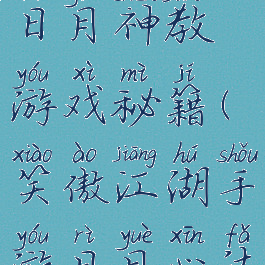 日月神教
yóu xì mì jí
游戏秘籍(
xiào ào jiāng hú shǒu
笑傲江湖手
yóu rì yuè xīn fǎ
游日月心法